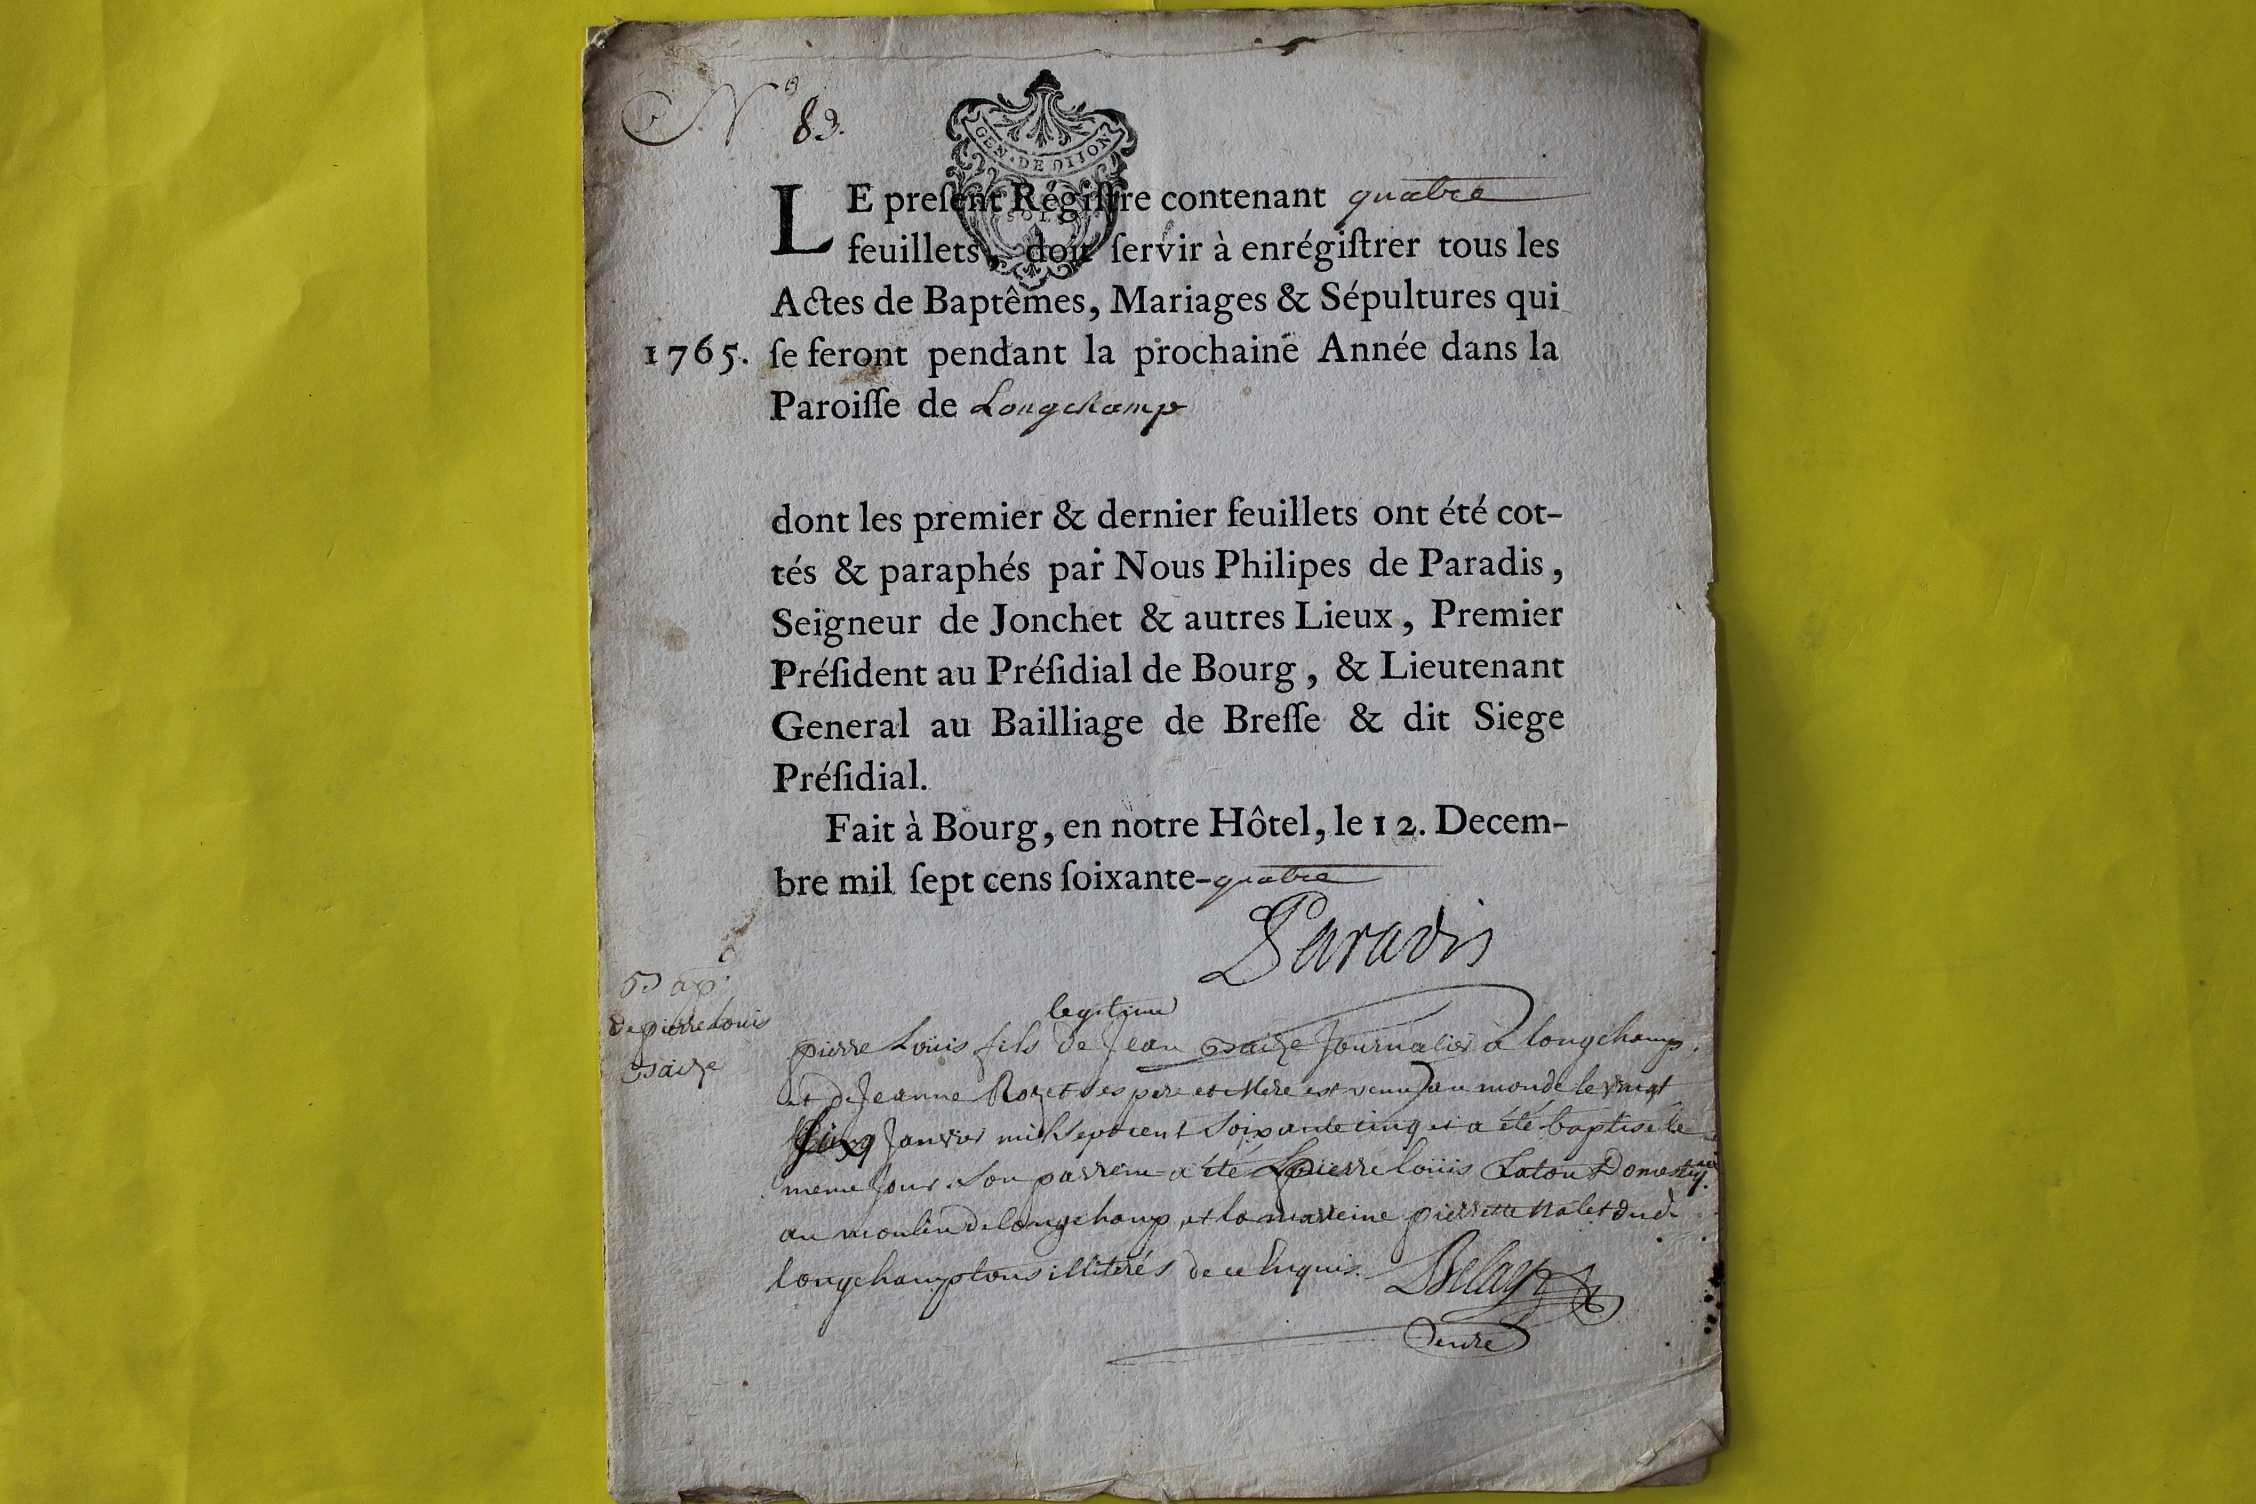 N° 83.
GEN. DE DIJON
SOLS
LE preſent Régiſtre contenant quatre
feuillets, doit ſervir à enrégiſtrer tous les
Actes de Baptêmes, Mariages & Sépultures qui
1765. ſe feront pendant la prochaine Année dans la
Paroiſſe de Longchamp
dont les premier & dernier feuillets ont été cot-
tés & paraphés par Nous Philipes de Paradis,
Seigneur de Jonchet & autres Lieux, Premier
Préſident au Préſidial de Bourg, & Lieutenant
General au Bailliage de Breſſe & dit Siege
Préſidial.
Fait à Bourg, en notre Hôtel, le 12. Decem-
bre mil ſept cens ſoixante-quatre
Paradis
Bap.
de pierre Louis
legitime
pierre Loüis fils de Jean Journalier à longchamp
et de Jeanne Rozet ses pere et Mere est venu au monde le vingt
Janvier mil sept cent soixante cinq et a été baptisé le
meme jour. Son parrein a été pierre loüis Domestiq.
au moulin de longchamp, et la marreine pierrette
longchamp tous illiterés de ce Enquis. Delay